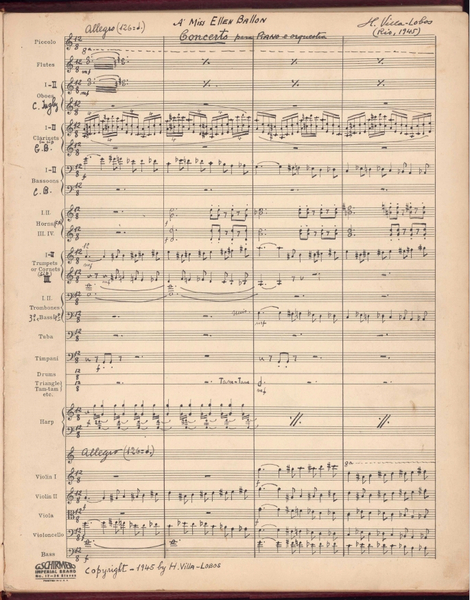 A' Miss Ellen Ballon
Allegro (126=♩.)
H. Villa-Lobos
(Rio, 1945)
Concerto para PIANO e orquestra
Piccolo
Flutes
I-II
Oboes
C. Ingl.
I-II
Clarinets
C.B.
I-II
Bassoons
C.B.
I.II.
Horns
III. IV.
I-II
Trumpets
or Cornets
III
I. II.
Trombones
3ª, Bass
Tuba
Timpani
Drums
Triangle
Tam-tam
etc.
Tam-Tam
Harp
Allegro (126=♩.)
Violin I
Violin II
Viola
Violoncello
Bass
G. SCHIRMER
IMPERIAL BRAND
Copyright - 1945 by H. Villa-Lobos